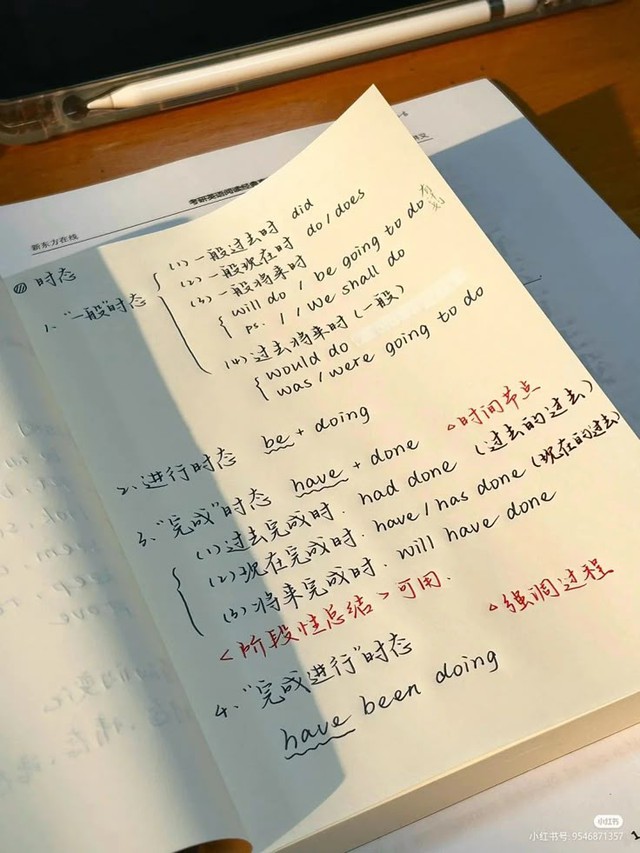 新东方在线
考研英语阅读经典
时态
1. "一般"时态
(1) 一般过去时 did
(2) 一般现在时 do / does
(3) 一般将来时
will do / be going to do
ps. I / We shall do
(4) 过去将来时 (一般)
would do
was / were going to do
2. 进行时态 be + doing
3. "完成"时态 have + done △时间节点
(1) 过去完成时. had done (过去的过去)
(2) 现在完成时. have / has done (现在的过去)
(3) 将来完成时. will have done
<阶段性总结>可用.
4. "完成进行"时态 △强调过程
have been doing
小红书
小红书号: 9546871357